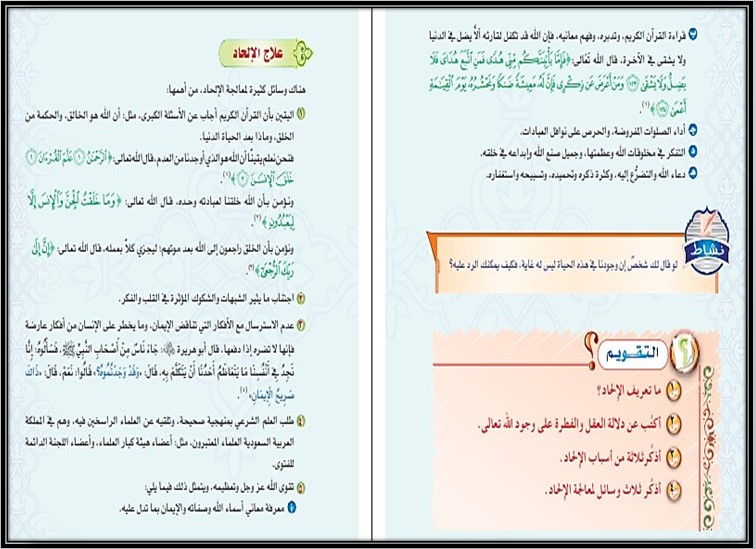 علاج الإلحاد
هناك وسائل كثيرة لمعالجة الإلحاد، من أهمها:
١ اليقين بأن القرآن الكريم أجاب عن الأسئلة الكبرى، مثل: أن الله هو الخالق، والحكمة من
الخلق، وماذا بعد الحياة الدنيا.
فنحن نعلم يقينًا أن الله هو الذي أوجدنا من العدم، قال الله تعالى: ﴿ٱلرَّحْمَٰنُ ١ عَلَّمَ ٱلْقُرْءَانَ ٢
خَلَقَ ٱلْإِنسَٰنَ ٣﴾(١).
ونؤمن بأن الله خلقنا لعبادته وحده، قال الله تعالى: ﴿وَمَا خَلَقْتُ ٱلْجِنَّ وَٱلْإِنسَ إِلَّا
لِيَعْبُدُونِ﴾(٢).
ونؤمن بأن الخلق راجعون إلى الله بعد موتهم؛ ليجزي كلًّا بعمله، قال الله تعالى: ﴿إِنَّ إِلَىٰ
رَبِّكَ ٱلرُّجْعَىٰٓ﴾(٣).
٢ اجتناب ما يثير الشبهات والشكوك المؤثرة في القلب والفكر.
٣ عدم الاسترسال مع الأفكار التي تناقض الإيمان، وما يخطر على الإنسان من أفكار عارضة
فإنها لا تضره إذا دفعها، قال أبو هريرة رضي الله عنه: جَاءَ نَاسٌ مِنْ أَصْحَابِ النَّبِيِّ ﷺ، فَسَأَلُوهُ: إِنَّا
نَجِدُ فِي أَنْفُسِنَا مَا يَتَعَاظَمُ أَحَدُنَا أَنْ يَتَكَلَّمَ بِهِ، قَالَ: «وَقَدْ وَجَدْتُمُوهُ؟» قَالُوا: نَعَمْ، قَالَ: «ذَاكَ
صَرِيحُ الْإِيمَانِ»(٤).
٤ طلب العلم الشرعي بمنهجية صحيحة، وتلقيه عن العلماء الراسخين فيه، وهم في المملكة
العربية السعودية العلماء المعتبرون، مثل: أعضاء هيئة كبار العلماء، وأعضاء اللجنة الدائمة
للفتوى.
٥ تقوى الله عز وجل وتعظيمه، ويتمثل ذلك فيما يلي:
أ معرفة معاني أسماء الله وصفاته والإيمان بما تدل عليه.
ب قراءة القرآن الكريم، وتدبره، وفهم معانيه، فإن الله قد تكفل لقارئه ألَّا يضل في الدنيا
ولا يشقى في الآخرة، قال الله تعالى: ﴿فَإِمَّا يَأْتِيَنَّكُم مِّنِّى هُدًى فَمَنِ ٱتَّبَعَ هُدَاىَ فَلَا
يَضِلُّ وَلَا يَشْقَىٰ ١٢٣ وَمَنْ أَعْرَضَ عَن ذِكْرِى فَإِنَّ لَهُۥ مَعِيشَةً ضَنكًا وَنَحْشُرُهُۥ يَوْمَ ٱلْقِيَٰمَةِ
أَعْمَىٰ ١٢٤﴾(١).
ج أداء الصلوات المفروضة، والحرص على نوافل العبادات.
د التفكر في مخلوقات الله وعظمتها، وجميل صنع الله وإبداعه في خلقه.
هـ دعاء الله والتضرُّع إليه، وكثرة ذكره وتحميده، وتسبيحه واستغفاره.
نشاط
لو قال لك شخصٌ إن وجودنا في هذه الحياة ليس له غاية، فكيف يمكنك الرد عليه؟
التقويم
١ ما تعريف الإلحاد؟
٢ أكتُب عن دلالة العقل والفطرة على وجود الله تعالى.
٣ أذكُر ثلاثة من أسباب الإلحاد.
٤ أذكُر ثلاث وسائل لمعالجة الإلحاد.